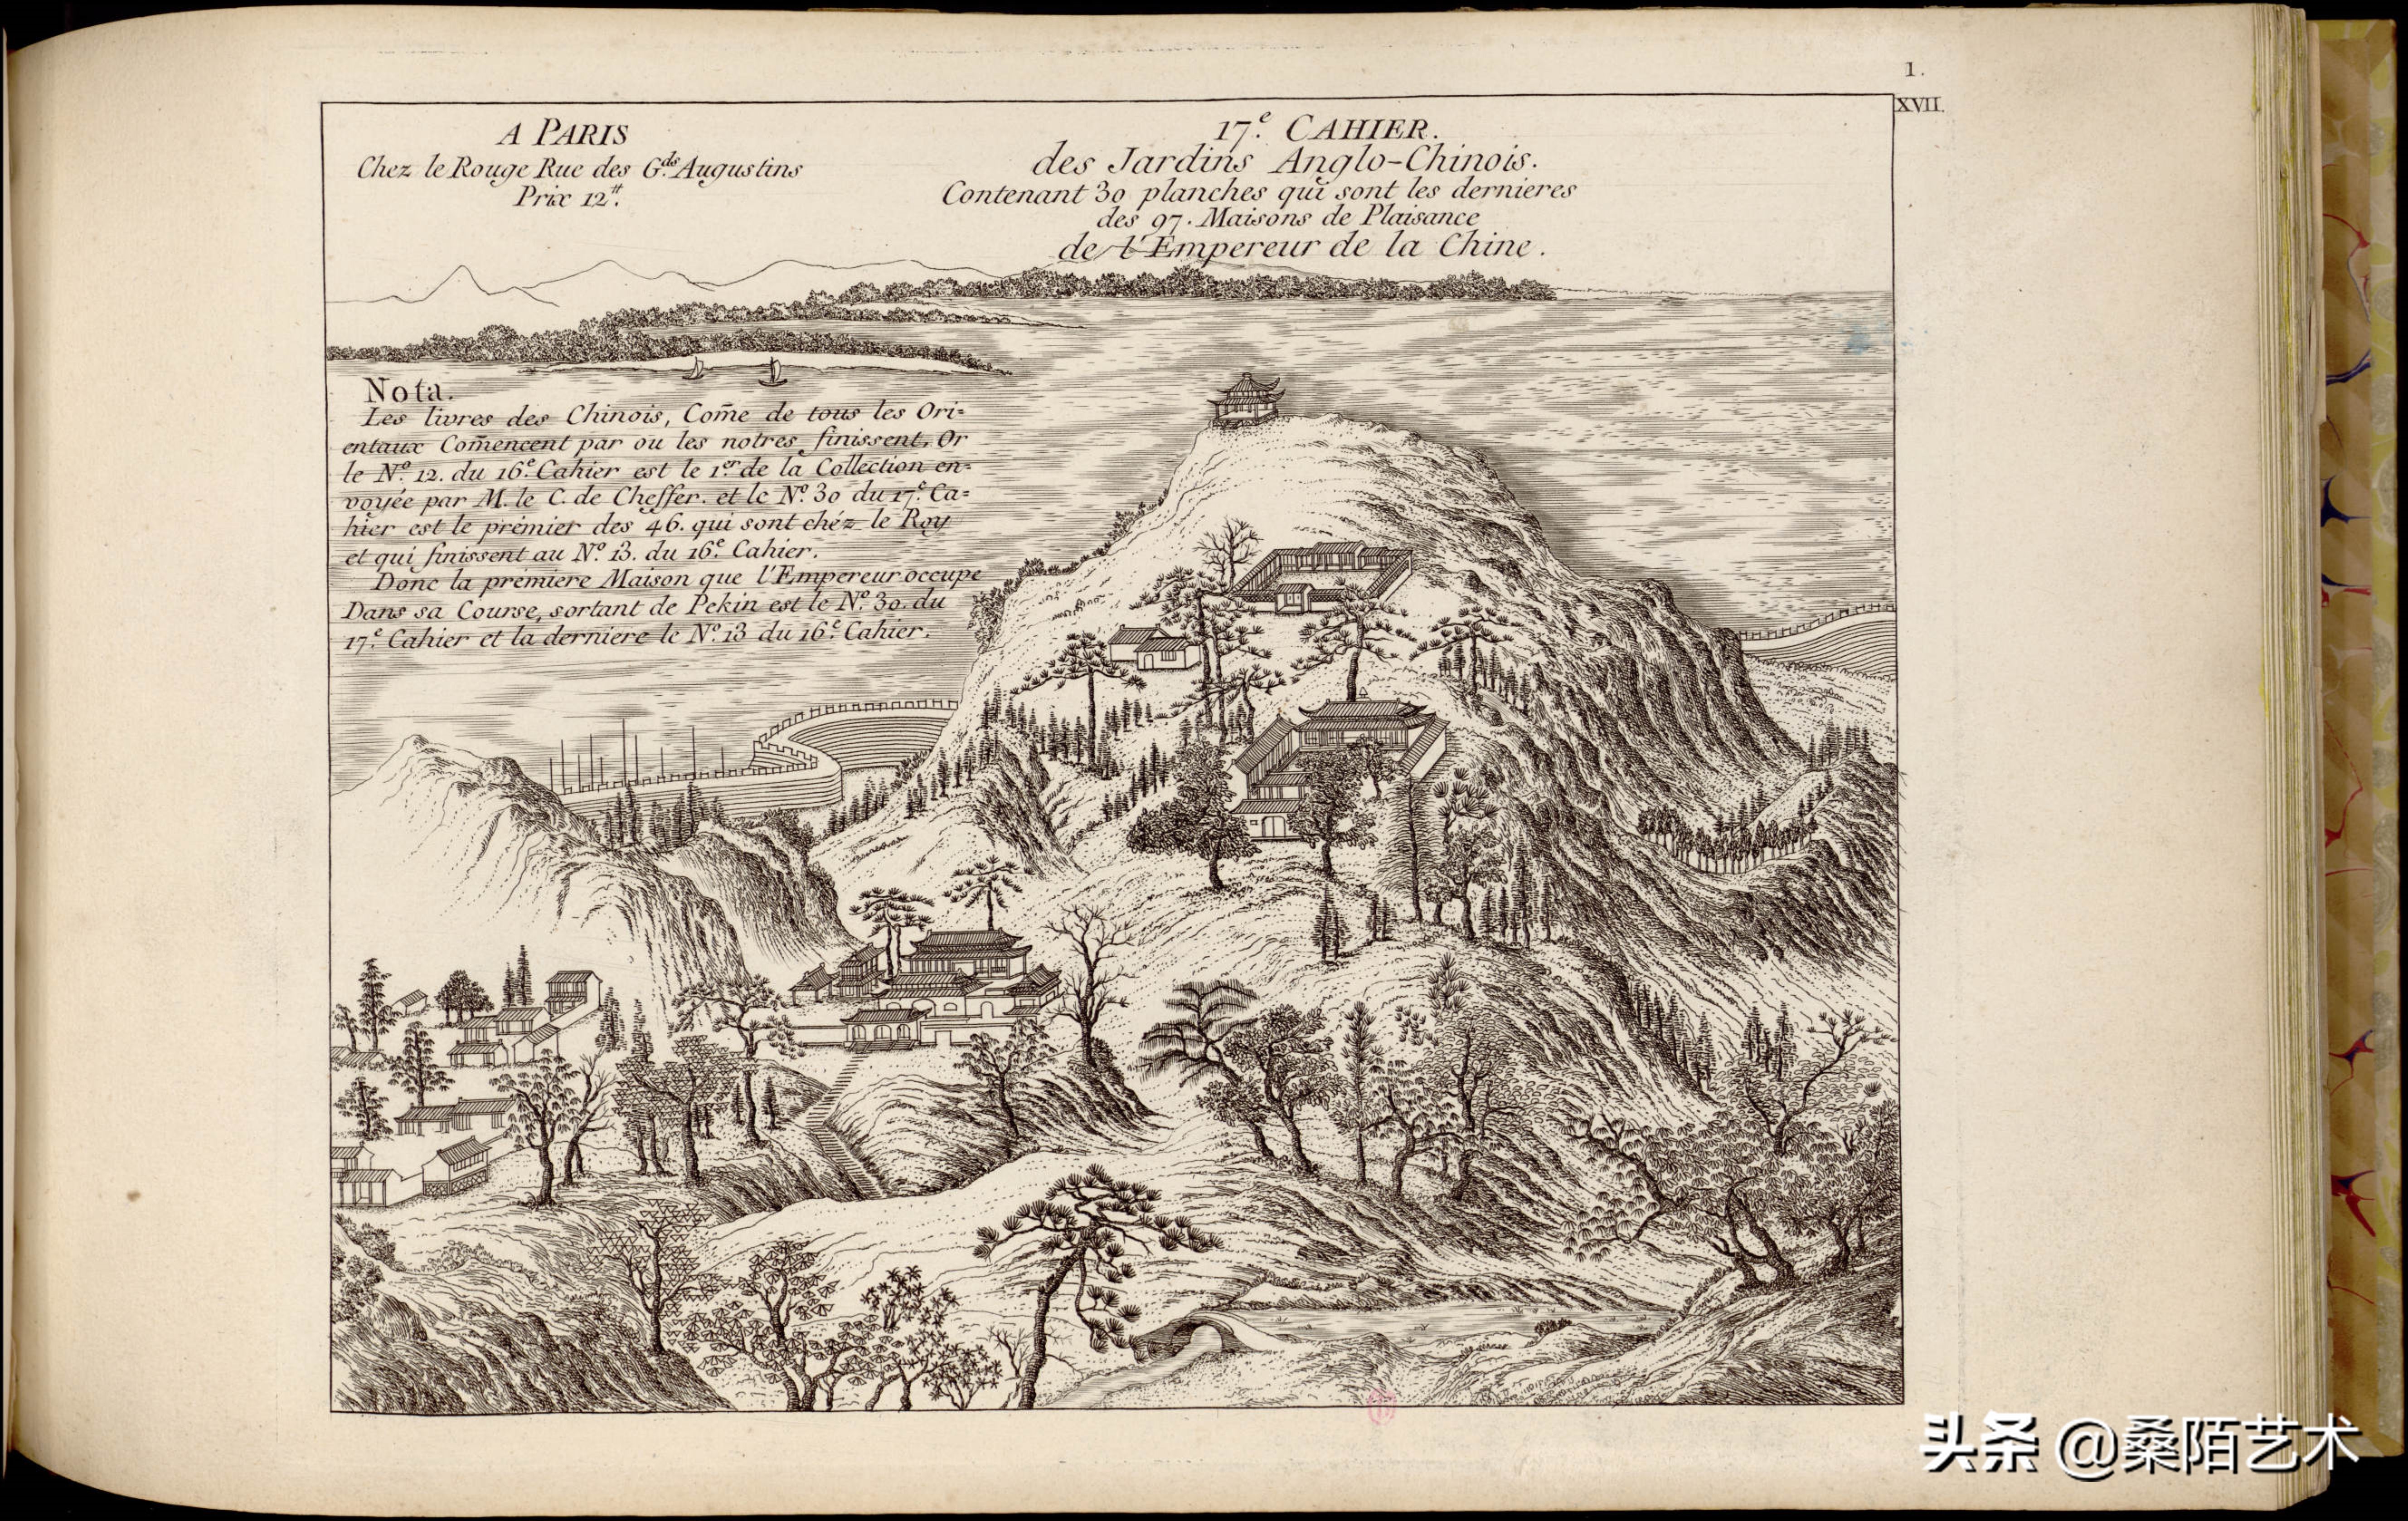 1.
XVII.
A PARIS
Chez le Rouge Rue des G.ds Augustins
Prix 12.#
17.e CAHIER.
des Jardins Anglo-Chinois.
Contenant 30 planches qui sont les dernieres
des 97. Maisons de Plaisance
de l'Empereur de la Chine.
Nota.
Les livres des Chinois, Com̄e de tous les Ori=
entaux Com̄encent par ou les notres finissent. Or
le N.o 12. du 16.e Cahier est le 1.er de la Collection en=
voyée par M. le C. de Cheffer. et le N.o 30 du 17.e Ca=
hier est le prémier des 46. qui sont chéz le Roy
et qui finissent au N.o 13. du 16.e Cahier.
Donc la prémiere Maison que l'Empereur occupe
Dans sa Course, sortant de Pekin est le N.o 30. du
17.e Cahier et la derniere le N.o 13 du 16.e Cahier.
头条 @桑陌艺术